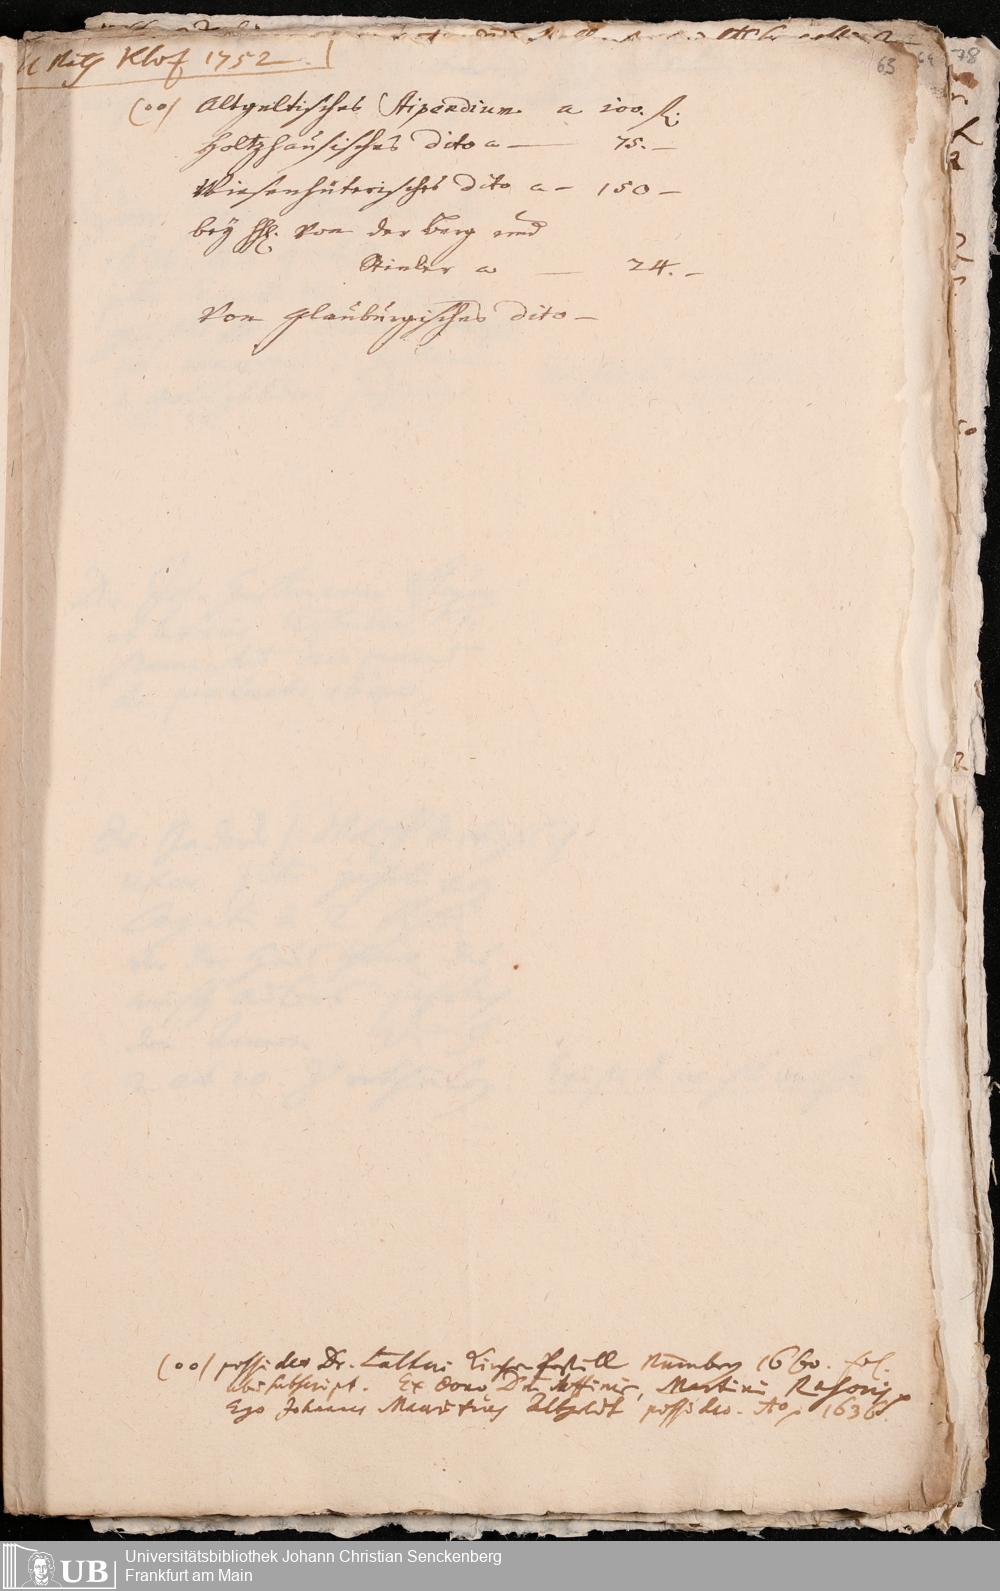 63 64 78
Klof 1752.
(00) Altgeltisches Stipendium a 200. fl.
Holtzhaüsisches dito a — 75. —
Wiesenhüterisches dito a — 150 —
bey HH. von der Berg und
Stieler a — 24. —
Von Glaübürgisches dito —
(00) possideo Dr. Lutheri Kirchen Postill Nürnberg 1660. fol.
ubi subscript. Ex dono Dn. Affinis, Martini
Ego Johannes Mauritius Altgelt possideo. Ao 1636
Universitätsbibliothek Johann Christian Senckenberg
UB Frankfurt am Main